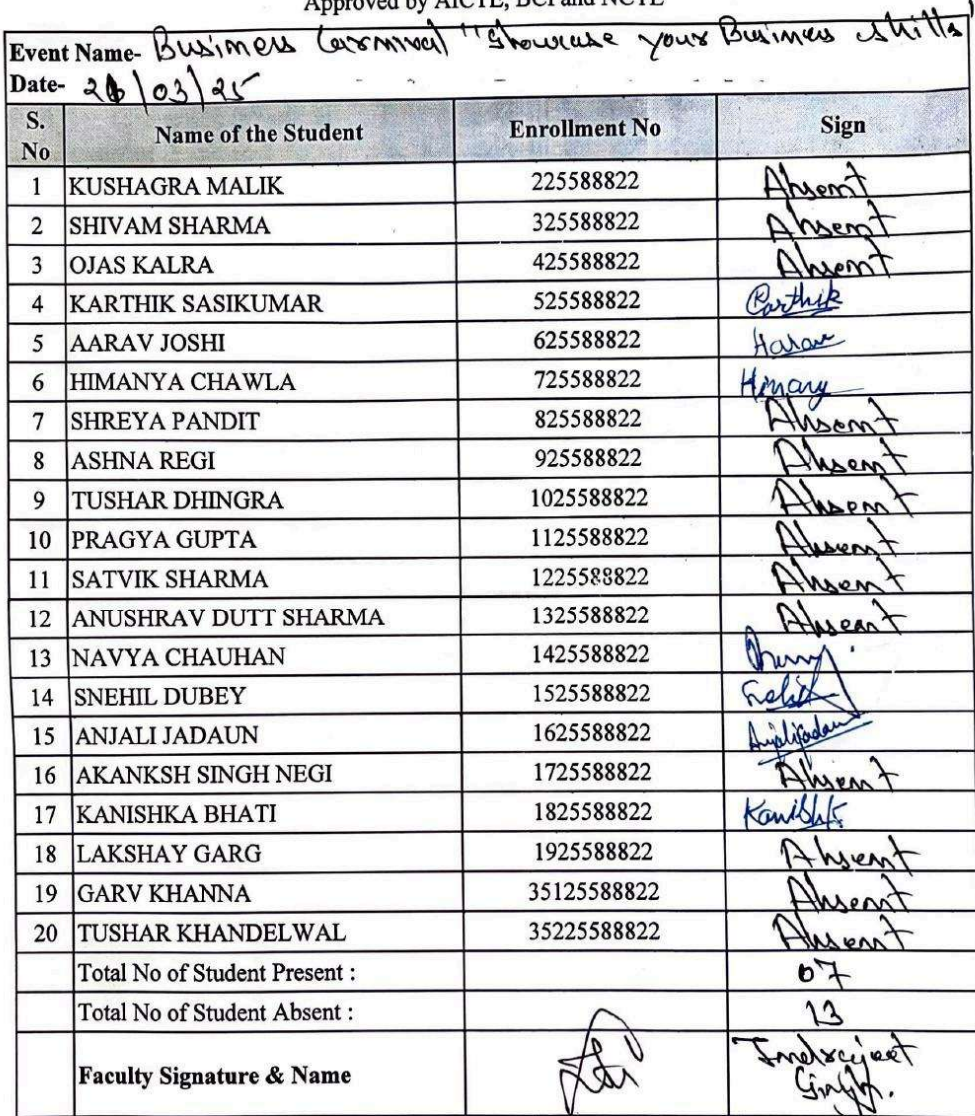 Approved by AICTE, BCI and NCTE
Event Name- Business Carnival "Showcase your Business skills"
Date- 26/03/25
S. No Name of the Student Enrollment No Sign
1 KUSHAGRA MALIK 225588822 Absent
2 SHIVAM SHARMA 325588822 Absent
3 OJAS KALRA 425588822 Absent
4 KARTHIK SASIKUMAR 525588822 Karthik
5 AARAV JOSHI 625588822 Aarav
6 HIMANYA CHAWLA 725588822 Himany
7 SHREYA PANDIT 825588822 Absent
8 ASHNA REGI 925588822 Absent
9 TUSHAR DHINGRA 1025588822 Absent
10 PRAGYA GUPTA 1125588822 Absent
11 SATVIK SHARMA 1225588822 Absent
12 ANUSHRAV DUTT SHARMA 1325588822 Absent
13 NAVYA CHAUHAN 1425588822
14 SNEHIL DUBEY 1525588822 Snehil
15 ANJALI JADAUN 1625588822 Anjalijadaun
16 AKANKSH SINGH NEGI 1725588822 Absent
17 KANISHKA BHATI 1825588822 Kanishk
18 LAKSHAY GARG 1925588822 Absent
19 GARV KHANNA 35125588822 Absent
20 TUSHAR KHANDELWAL 35225588822 Absent
Total No of Student Present : 07
Total No of Student Absent : 13
Faculty Signature & Name Indrajeet Singh.